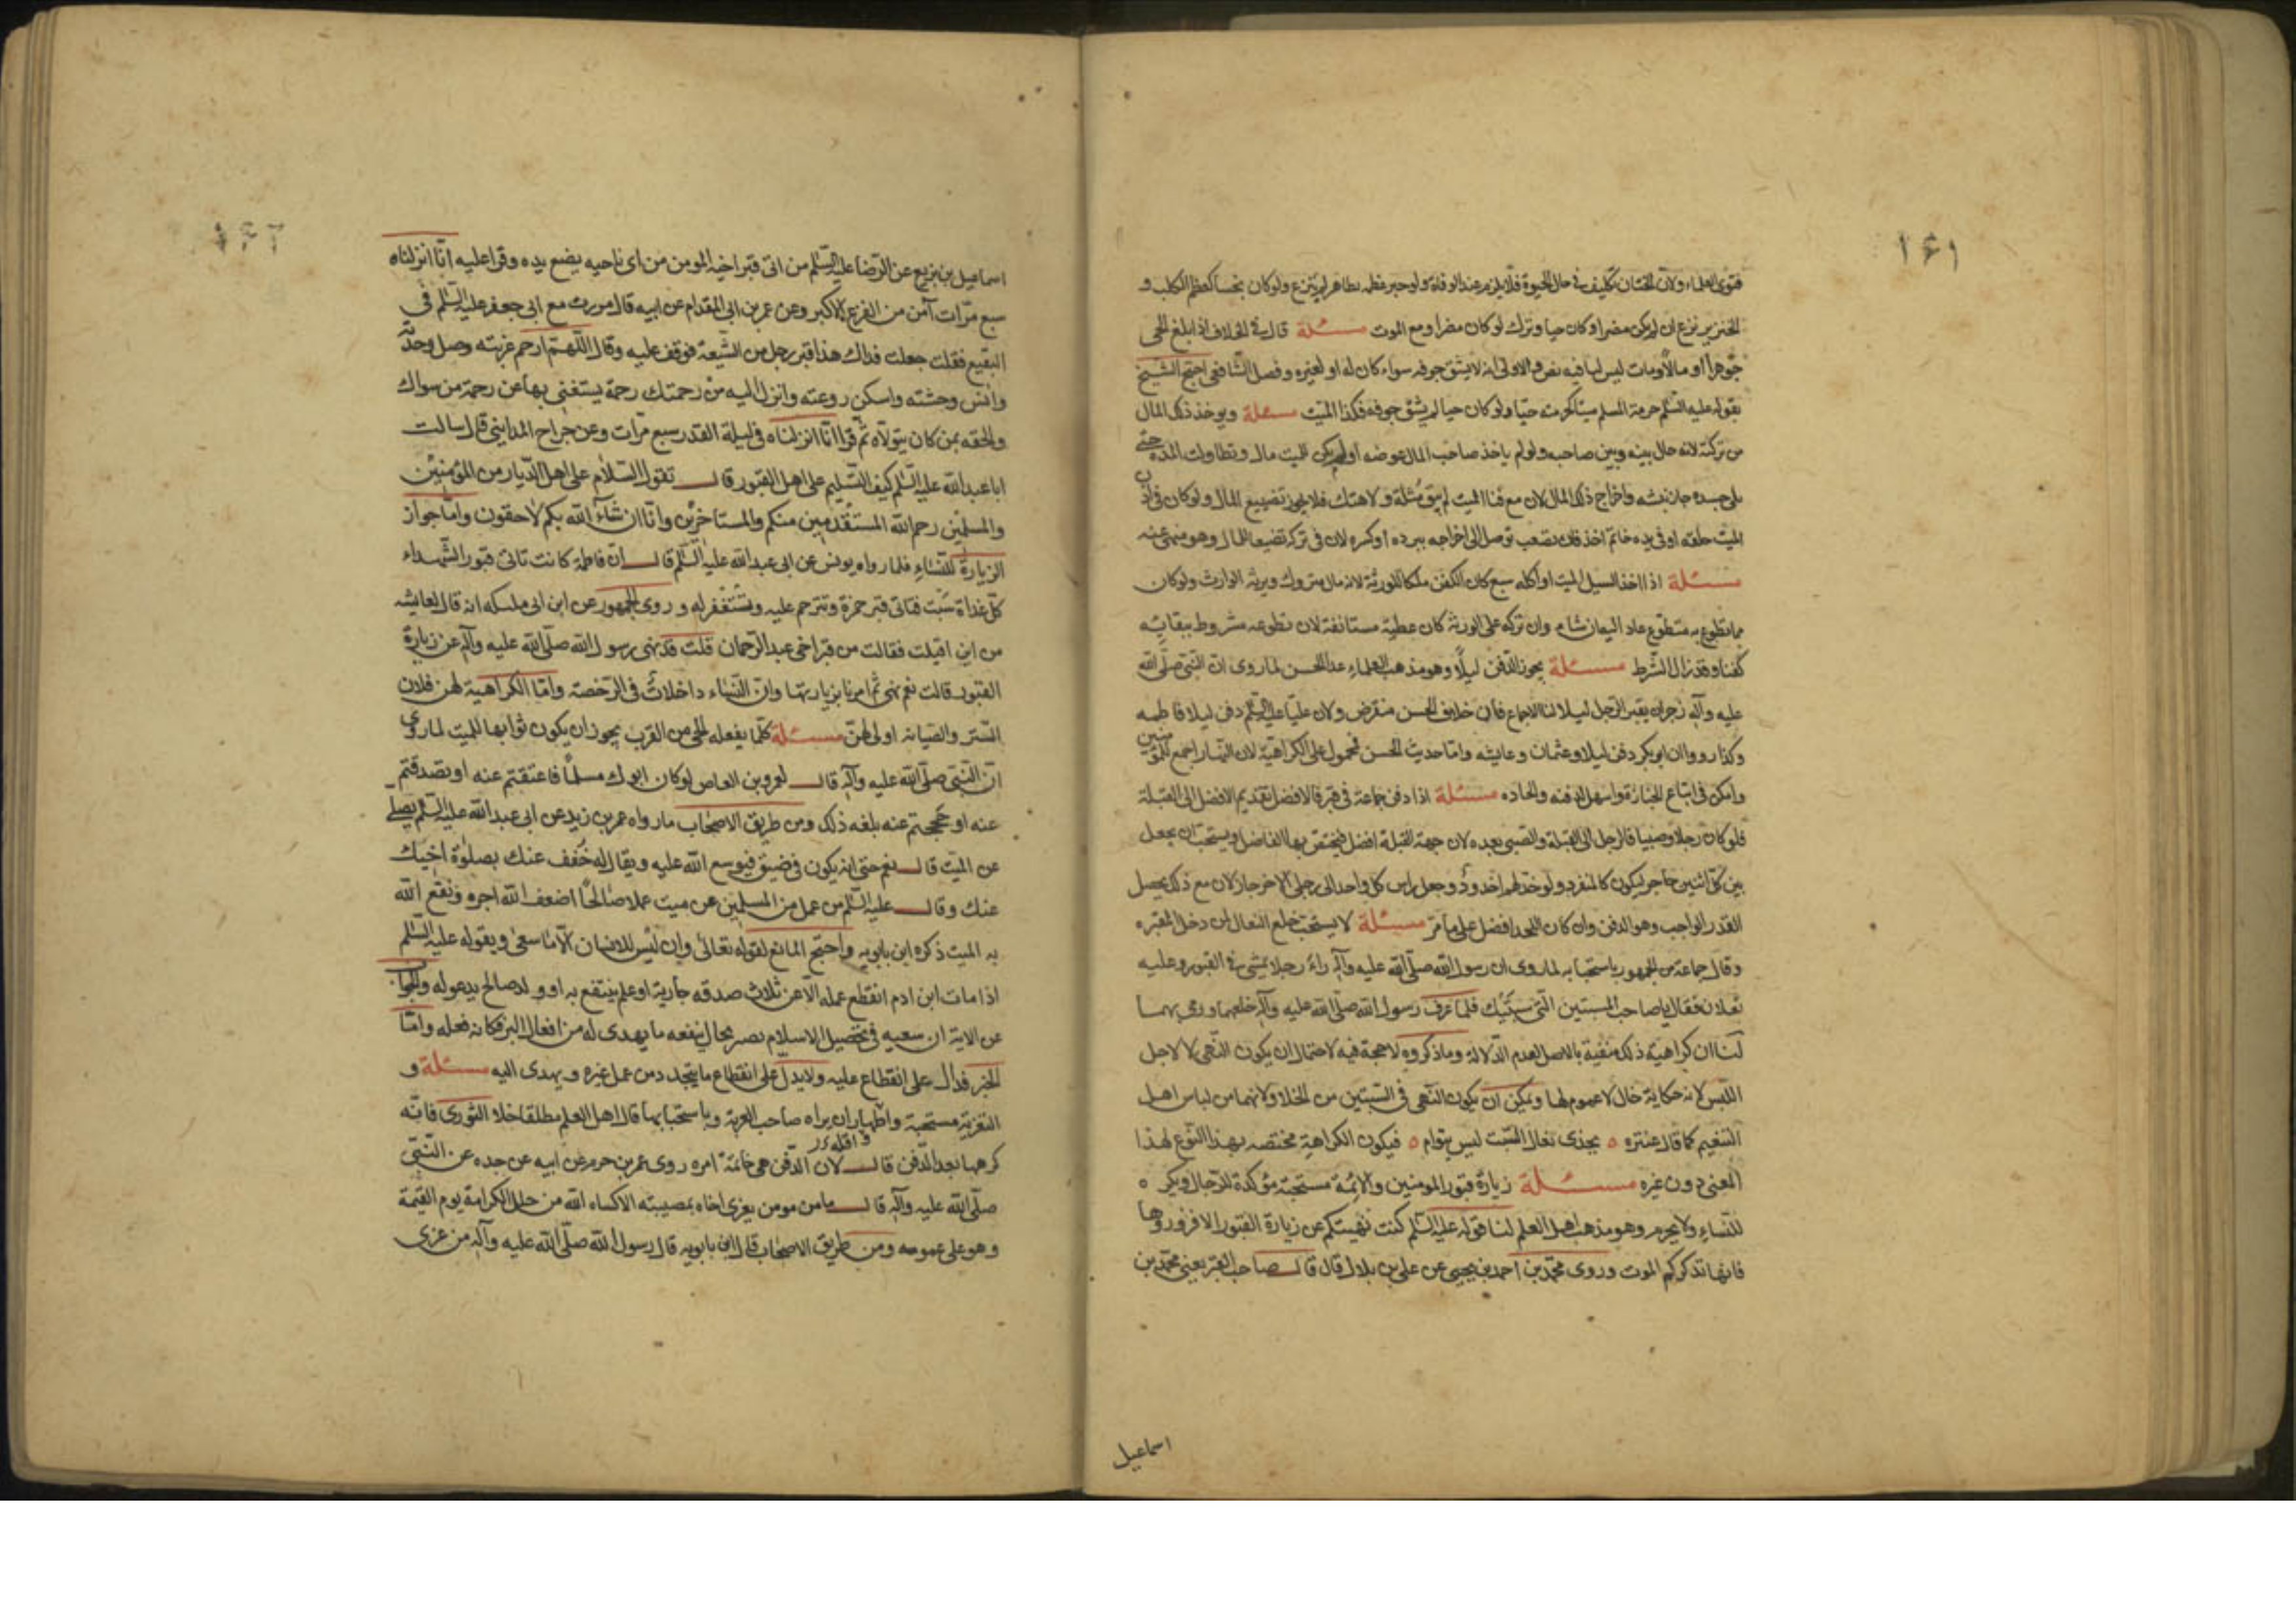 ١٦١
فتوى العلماء ولان الختان تكليف في حال الحيوة فلا يلزم عند الوفاة ولو جبر عظمه بطاهر لم ينزع ولو كان نجسا كعظم الكلب و
الخنزير نزع ان لم يكن مضرا وكان حيا وترك لو كان مضرا ومع الموت مسئلة قال في الخلاف اذا بلغ الحي
جوهرا أو مالا ومات ليس لنا فيه نص والاولى انه لا يشق جوفه سواء كان له او لغيره وفصل الشافعى احتج الشيخ
بقوله عليه السلم حرمة المسلم ميتا كحرمته حيا ولو كان حيا لم يشق جوفه فكذا الميت مسئلة ويوخذ ذلك المال
من تركته لانه حال بينه وبين صاحبه ولو لم ياخذ صاحب المال عوضه او لم يكن للميت مال وتطاولت المدة حتى
بلى جسده جاز نبشه واخراج ذلك المال لان مع فنا الميت لم يبق مُثلة ولا هتك فلا يجوز تضييع المال ولو كان في اذن
الميت حلقه او في يده خاتم اخذ فان تصعب توصل الى اخراجه ببرده او كسره لان في تركه تضيعا للمال وهو منهى عنه
مسئلة اذا اخذ السيل الميت او اكله سبع كان الكفن ملكا للورثة لانه مال متروك ويرثه الوارث ولو كان
مما تطوع به متطوع عاد اليه ان شاء وان تركه على الورثة كان عطية مستانفة لان تطوعه مشروط ببقائه
كفنا وقد زال الشرط مسئلة يجوز الدفن ليلًا وهو مذهب العلماء عدا الحسن لما روى ان النبى صلى الله
عليه وآله زجر ان يقبر الرجل ليلا لنا الاجماع فان خلاف الحسن منقرض ولان عليا عليه السلم دفن ليلا فاطمه
وكذا رووا ان ابو بكر دفن ليلا وعثمان وعايشه واما حديث الحسن فمحمول على الكراهية لان النهار اجمع للمؤمنين
وامكن في اتباع الجنازة واسهل لدفنه والحاده مسئلة اذا دفن جماعة في قبر فالافضل تقديم الافضل الى القبلة
فلو كان رجلا وصبيا فالرجل الى القبلة والصبى بعده لان جهة القبلة افضل فيختص بها الفاضل ويستحب ان يجعل
بين كل اثنين حاجز ليكون كالمنفرد ولو خد لهم اخدود وجعل راس كل واحد الى رجلى الاخر جاز لان مع ذلك يحصل
القدر الواجب وهو الدفن وان كان اللحد افضل على ما مر مسئلة لا يستحب خلع النعال لمن دخل المقبره
وقال جماعة من الجمهور باستحبابه لما روى ان رسول الله صلى الله عليه وآله راءَ رجلا يمشى في القبور وعليه
نعلان فقال يا صاحب السبتين الق سبتيك فلما عرف رسول الله صلى الله عليه وآله خلعهما ورمى بهما
لنا ان كراهية ذلك منفية بالاصل لعدم الدلالة وما ذكروه لا حجة فيه لاحتمال ان يكون النهى لا لاجل
اللبس لانه حكاية حال لا عموم لها ويمكن ان يكون النهى في السبتين من الخيلا ولانهما من لباس اهل
التنعيم كما قال عنتره ٥ يحذى نعال السبت ليس بتوام ٥ فيكون الكراهية مختصه بهذا النوع لهذا
المعنى دون غيره مسئلة زيارة قبور المومنين والائمة مستحبة مؤكدة للرجال ويكره
للنساء ولا يحرم وهو مذهب اهل العلم لنا قوله عليه السلم كنت نهيتكم عن زيارة القبور الا فزوروها
فانها تذكركم الموت وروى محمد بن احمد بن يحيى عن على بن بلال قال قال صاحب القبر يعنى محمد بن
اسماعيل
١٦٢
اسماعيل بن بزيع عن الرضا عليه السلم من اتى قبر اخيه المومن من اى ناحيه يضع يده وقرا عليه انا انزلناه
سبع مرات آمن من الفزع الاكبر وعن عمر بن ابى المقدام عن ابيه قال مررت مع ابى جعفر عليه السلم في
البقيع فقلت جعلت فداك هذا قبر رجل من الشيعة فوقف عليه وقال اللهم ارحم غربته وصل وحدته
وانس وحشته واسكن روعته وانزل اليه من رحمتك رحمة يستغنى بها عن رحمة من سواك
والحقه بمن كان يتولاه ثم قرا انا انزلناه في ليلة القدر سبع مرات وعن جراح المداينى قال سالت
ابا عبد الله عليه السلم كيف التسليم على اهل القبور قال تقول السلام على اهل الديار من المؤمنين
والمسلمين رحم الله المستقدمين منكم والمستاخرين وانا ان شاء الله بكم لاحقون واما جواز
الزيارة للنساء فلما رواه يونس عن ابى عبد الله عليه السلم قال ان فاطمة كانت تاتى قبور الشهداء
كل غداة سبت فتاتى قبر حمزة وتترحم عليه وتستغفر له وروى الجمهور عن ابن ابى مليكه انه قال لعايشه
من اين اقبلت فقالت من قبر اخى عبد الرحمان قلت قد نهى رسول الله صلى الله عليه وآله عن زيارة
القبور قالت نعم نهى ثم امرنا بزيارتها وان النساء داخلات في الرخصة واما الكراهية لهن فلان
الستر والصيانه اولى لهن مسئلة كلما يفعله الحى من القرب يجوز ان يكون ثوابها للميت لما روى
ان النبى صلى الله عليه وآله قال لعمرو بن العاص لو كان ابوك مسلماً فاعتقتم عنه او تصدقتم
عنه او حججتم عنه بلغه ذلك ومن طريق الاصحاب ما رواه عمر بن زيد عن ابى عبد الله عليه السلم يصلى
عن الميت قال نعم حتى انه يكون في ضيق فيوسع الله عليه ويقال له خفف عنك بصلوة اخيك
عنك وقال عليه السلم من عمل من المسلمين عن ميت عملا صالحًا اضعف الله اجره ونفع الله
به الميت ذكره ابن بابويه واحتج المانع لقوله تعالى وان ليس للانسان الا ما سعى وبقوله عليه السلم
اذا مات ابن ادم انقطع عمله الا عن ثلاث صدقه جارية او علم ينتفع به او ولد صالح يدعو له والجواب
عن الاية ان سعيه في تحصيل الاسلام بصر بحال ينفعه ما يهدى له من افعال البر فكانه فعله واما
الخبر فدال على انقطاع عليه ولا يدل على انقطاع ما يتجدد من عمل غيره ويهدى اليه مسئلة و
التعزية مستحبة واقله ان يراه صاحب العزية وباستحبابها قال اهل العلم مطلقا خلا الثورى فانه
كرهها بعد الدفن قال لان الدفن هى خاتمة امره روى عمر بن حرم عن ابيه عن جده عن النبى
صلى الله عليه وآله قال ما من مومن يعزى اخاه بمصيبته الا كساه الله من حلل الكرامة يوم القيمة
وهو على عمومه ومن طريق الاصحاب قال ابن بابويه قال رسول الله صلى الله عليه وآله من عزى